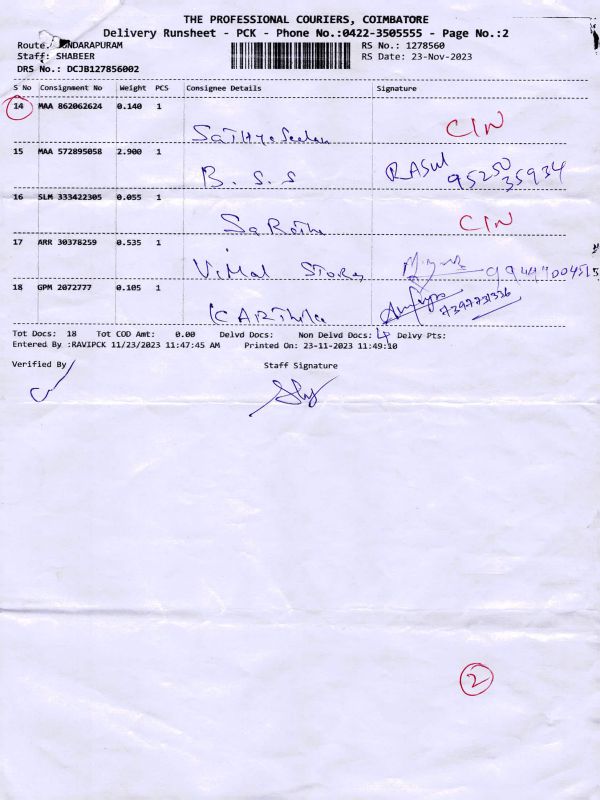 THE PROFESSIONAL COURIERS, COIMBATORE
Delivery Runsheet - PCK - Phone No.:0422-3505555 - Page No.:2
Route: SUNDARAPURAM RS No.: 1278560
Staff: SHABEER RS Date: 23-Nov-2023
DRS No.: DCJB127856002
S No Consignment No Weight PCS Consignee Details Signature
14 MAA 862062624 0.140 1
CIN
15 MAA 572895058 2.900 1
B.S.S RASUL 95250 35934
16 SLM 333422305 0.055 1
CIN
17 ARR 30378259 0.535 1
Vimal Stores
18 GPM 2072777 0.105 1
KARThika 7397731326
Tot Docs: 18 Tot COD Amt: 0.00 Delvd Docs: Non Delvd Docs: 4 Delvy Pts:
Entered By :RAVIPCK 11/23/2023 11:47:45 AM Printed On: 23-11-2023 11:49:10
Verified By Staff Signature
2